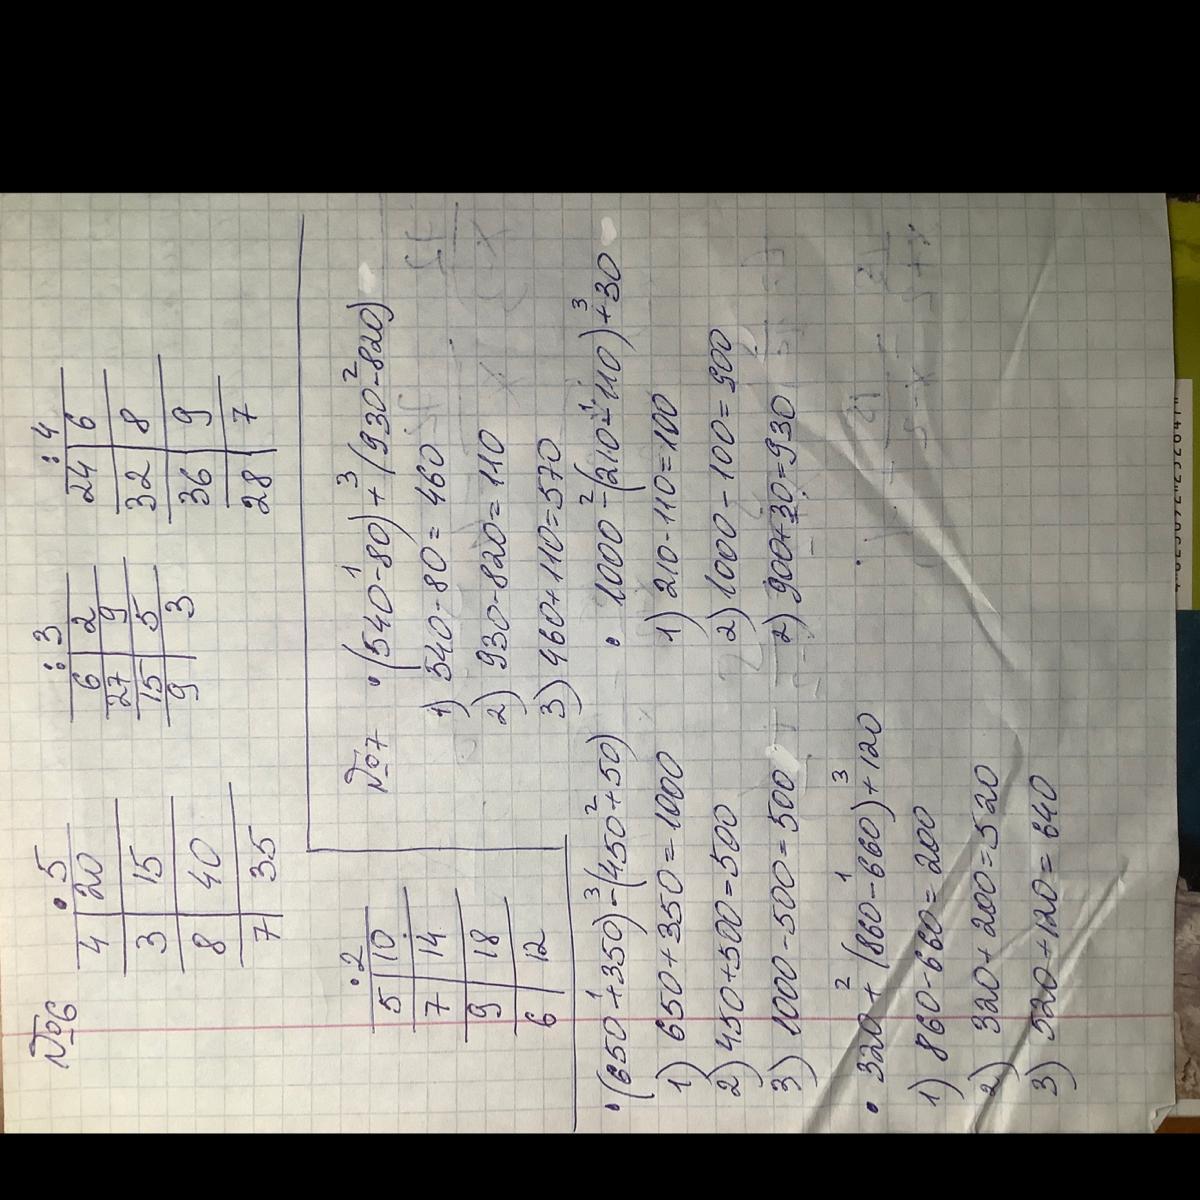 №6
· 5
4 20
3 15
8 40
7 35
: 3
6 2
27 9
15 5
9 3
: 4
24 6
32 8
36 9
28 7
· 2
5 10
7 14
9 18
6 12
№7
• (540-80)+(930-820)
1 3 2
1) 540-80=460
2) 930-820=110
3) 460+110=570
• (650+350)-(450+50)
1 3 2
1) 650+350=1000
2) 450+500=500
3) 1000-500=500
• 1000-(210-110)+30
2 1 3
1) 210-110=100
2) 1000-100=900
2) 900+30=930
• 320+(860-660)+120
2 1 3
1) 860-660=200
2) 320+200=520
3) 520+120=640